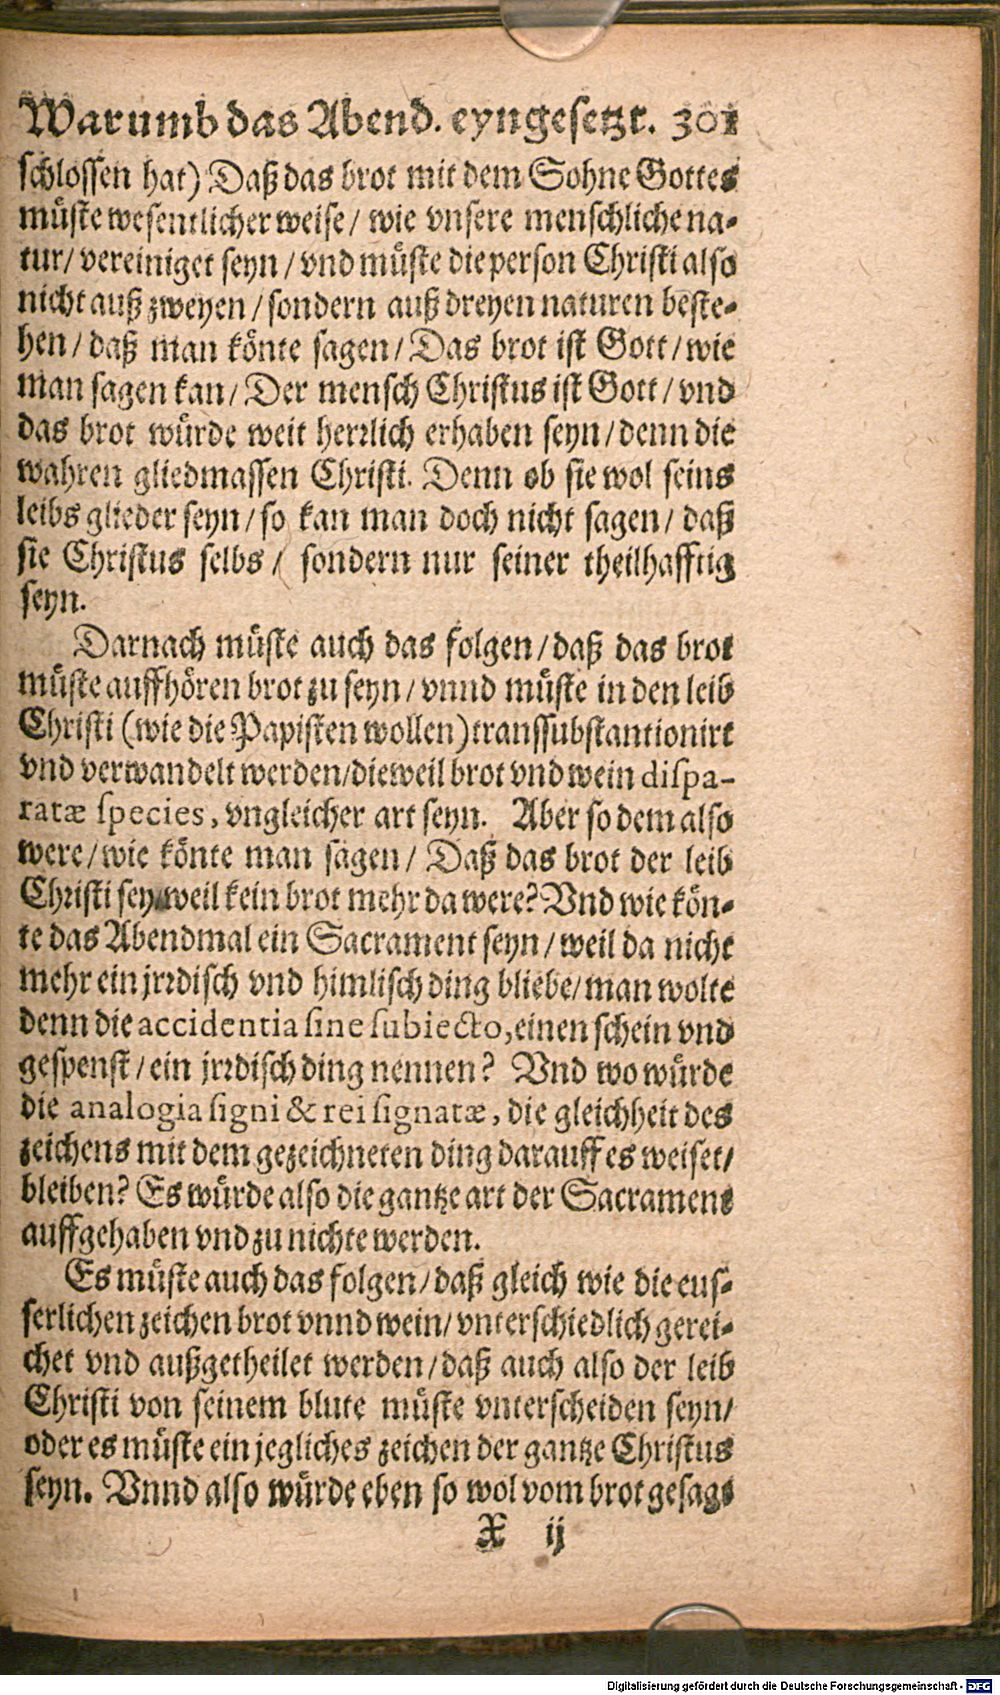 Warumb das Abend. eyngesetzt. 301
schlossen hat) Daß das brot mit dem Sohne Gottes
müste wesentlicher weise / wie vnsere menschliche na-
tur / vereiniget seyn / vnd müste die person Christi also
nicht auß zweyen / sondern auß dreyen naturen beste-
hen / daß man könte sagen / Das brot ist Gott / wie
man sagen kan / Der mensch Christus ist Gott / vnd
das brot würde weit herrlich erhaben seyn / denn die
wahren gliedmassen Christi. Denn ob sie wol seins
leibs glieder seyn / so kan man doch nicht sagen / daß
sie Christus selbs / sondern nur seiner theilhafftig
seyn.
Darnach müste auch das folgen / daß das brot
müste auffhören brot zu seyn / vnnd müste in den leib
Christi (wie die Papisten wollen) transsubstantionirt
vnd verwandelt werden / dieweil brot vnd wein dispa-
ratæ species, vngleicher art seyn. Aber so dem also
were / wie könte man sagen / Daß das brot der leib
Christi sey / weil kein brot mehr da were? Vnd wie kön-
te das Abendmal ein Sacrament seyn / weil da nicht
mehr ein jrrdisch vnd himlisch ding bliebe / man wolte
denn die accidentia sine subiecto, einen schein vnd
gespenst / ein jrrdisch ding nennen? Vnd wo würde
die analogia signi & rei signatæ, die gleichheit des
zeichens mit dem gezeichneten ding darauff es weiset /
bleiben? Es würde also die gantze art der Sacrament
auffgehaben vnd zu nichte werden.
Es müste auch das folgen / daß gleich wie die eus-
serlichen zeichen brot vnnd wein / vnterschiedlich gerei-
chet vnd außgetheilet werden / daß auch also der leib
Christi von seinem blute müste vnterscheiden seyn /
oder es müste ein jegliches zeichen der gantze Christus
seyn. Vnnd also würde eben so wol vom brot gesagt
X ij
Digitalisierung gefördert durch die Deutsche Forschungsgemeinschaft - DFG